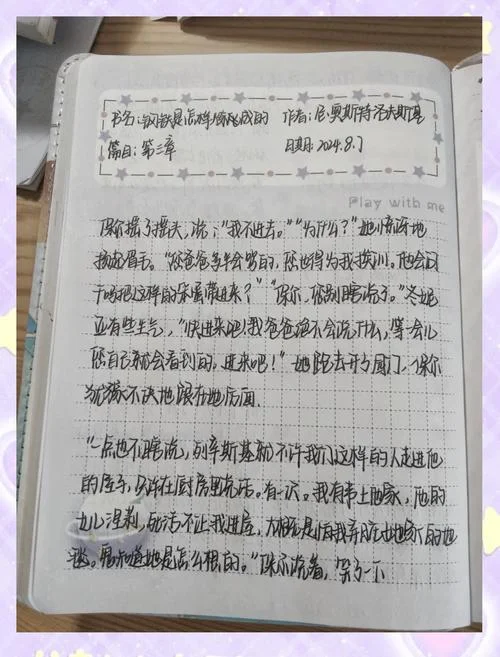 书名:钢铁是怎样炼成的 作者:尼·奥斯特洛夫斯基
篇目:第三章 日期:2024.8.7
Play with me
保尔摇了摇头,说:“我不进去。”“为什么?”她惊讶地
扬起眉毛。“您爸爸多半会骂的,您也得为我挨训。他会问
干吗把这样的呆鹰带进来?”“保尔,您别瞎说了。”冬妮
亚有些生气,“快进来吧!我爸爸绝不会说什么,等一会儿
您自己就会看到的,进来吧!”她跑去开了厨门,保尔
犹豫不决地跟在她后面.
“一点也不瞎说,列辛斯基就不许我们这样的人走进他
的屋子,只许在厨房里说话。有一次。我有事上他家,他的
女儿涅莉,死活不让我进屋,大概是怕我弄脏她家的地
毯。鬼知道她是怎么想的。”保尔说着,笑了一下